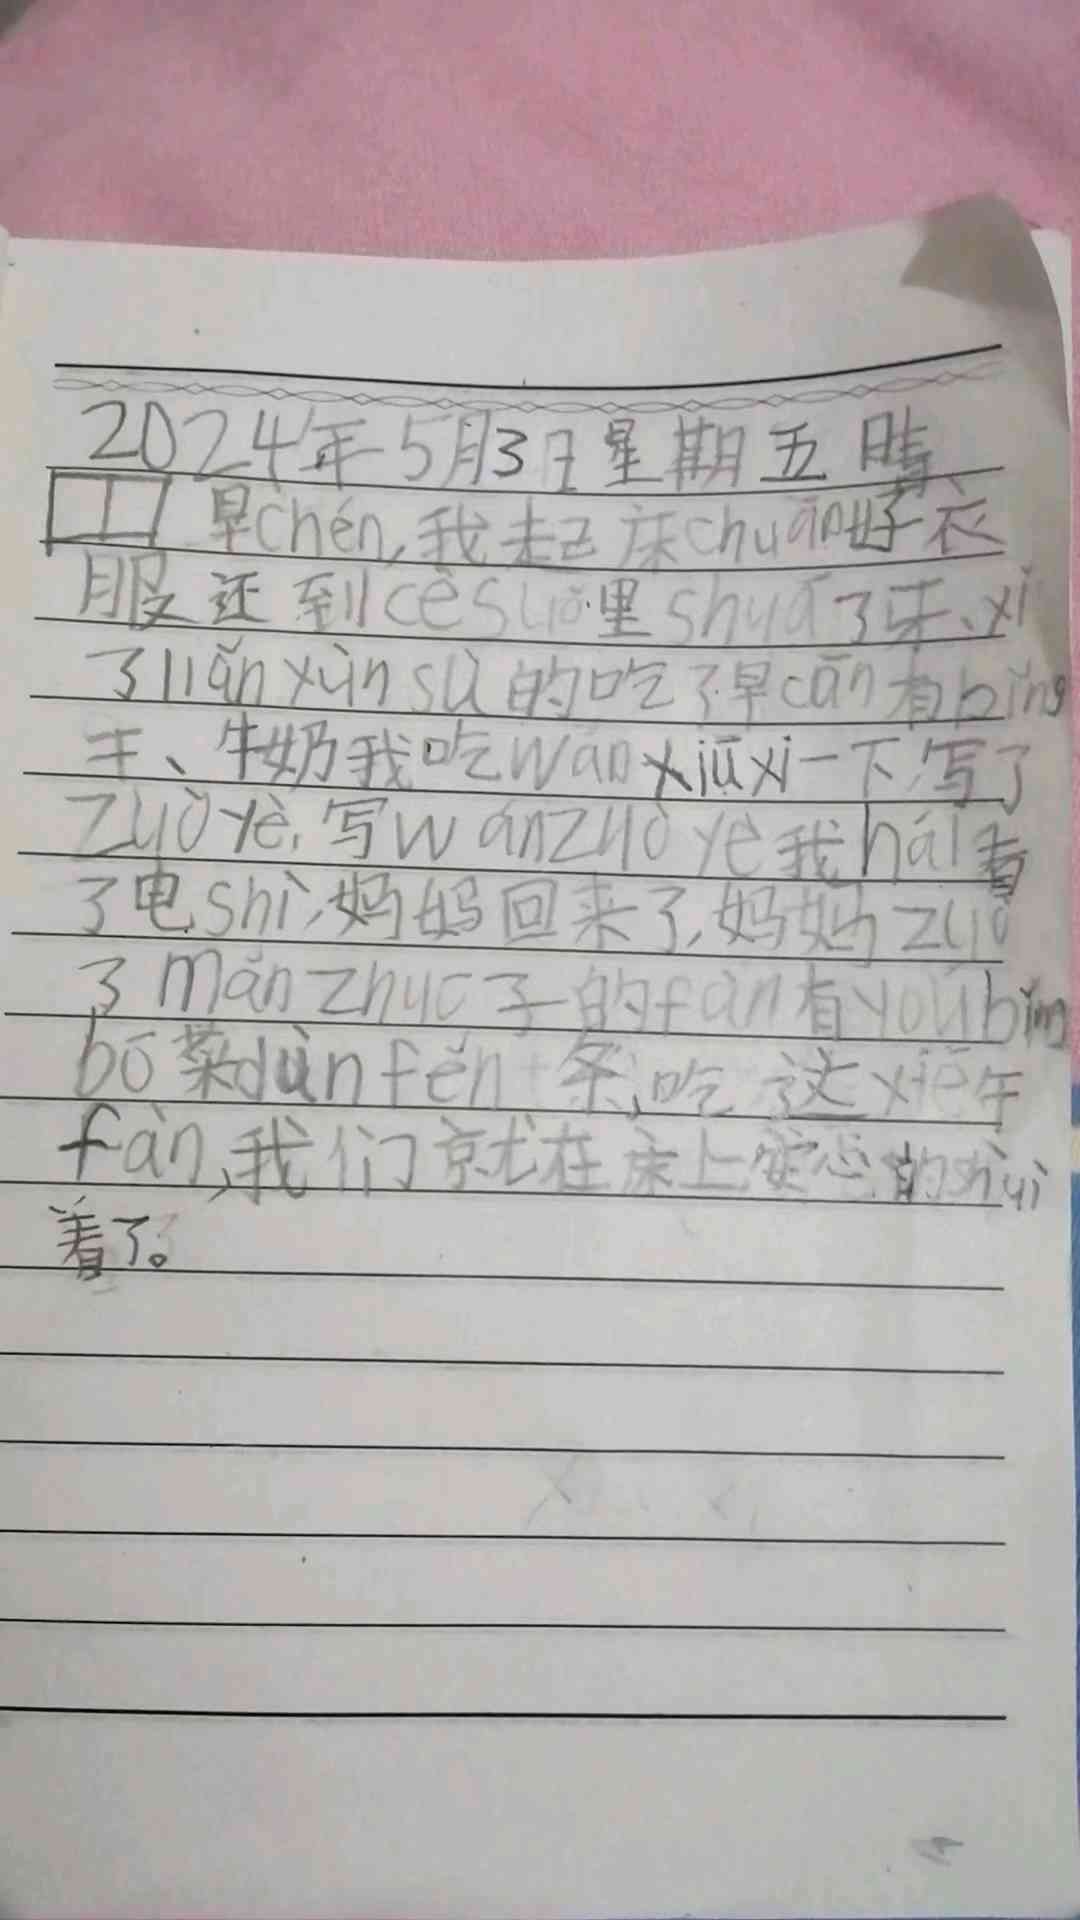 2024年5月3日星期五晴
早chén,我起床chuān好衣
服还到cèsuǒ里shuā了牙、xǐ
了liǎn xùn sù的吃了早cān有bǐng
干、牛奶我吃wán xiūxi一下,写了
zuò yè,写wán zuò yè我hái看
了电shì,妈妈回来了,妈妈zuò
了mǎn zhuō子的fàn有yóu bǐng
bō菜dùn fěn条,吃这xiē午
fàn,我们就在床上安心的shuì
着了。